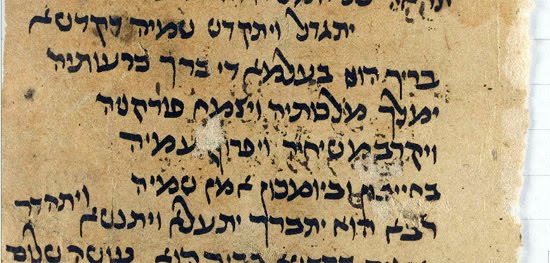 יתגדל ויתקדש שמיה דקדשא
בריך הוא בעלמא די ברך כרעותיה
ימלך מלכותיה ויצמח פורקניה
ויקרב משיחיה ויפרוק עמיה
בחייכון וביומכון אמן שמיה
רבא הוא יתברך יתעלא ויתנשא ויתהדר
בריך הוא עושה שלום